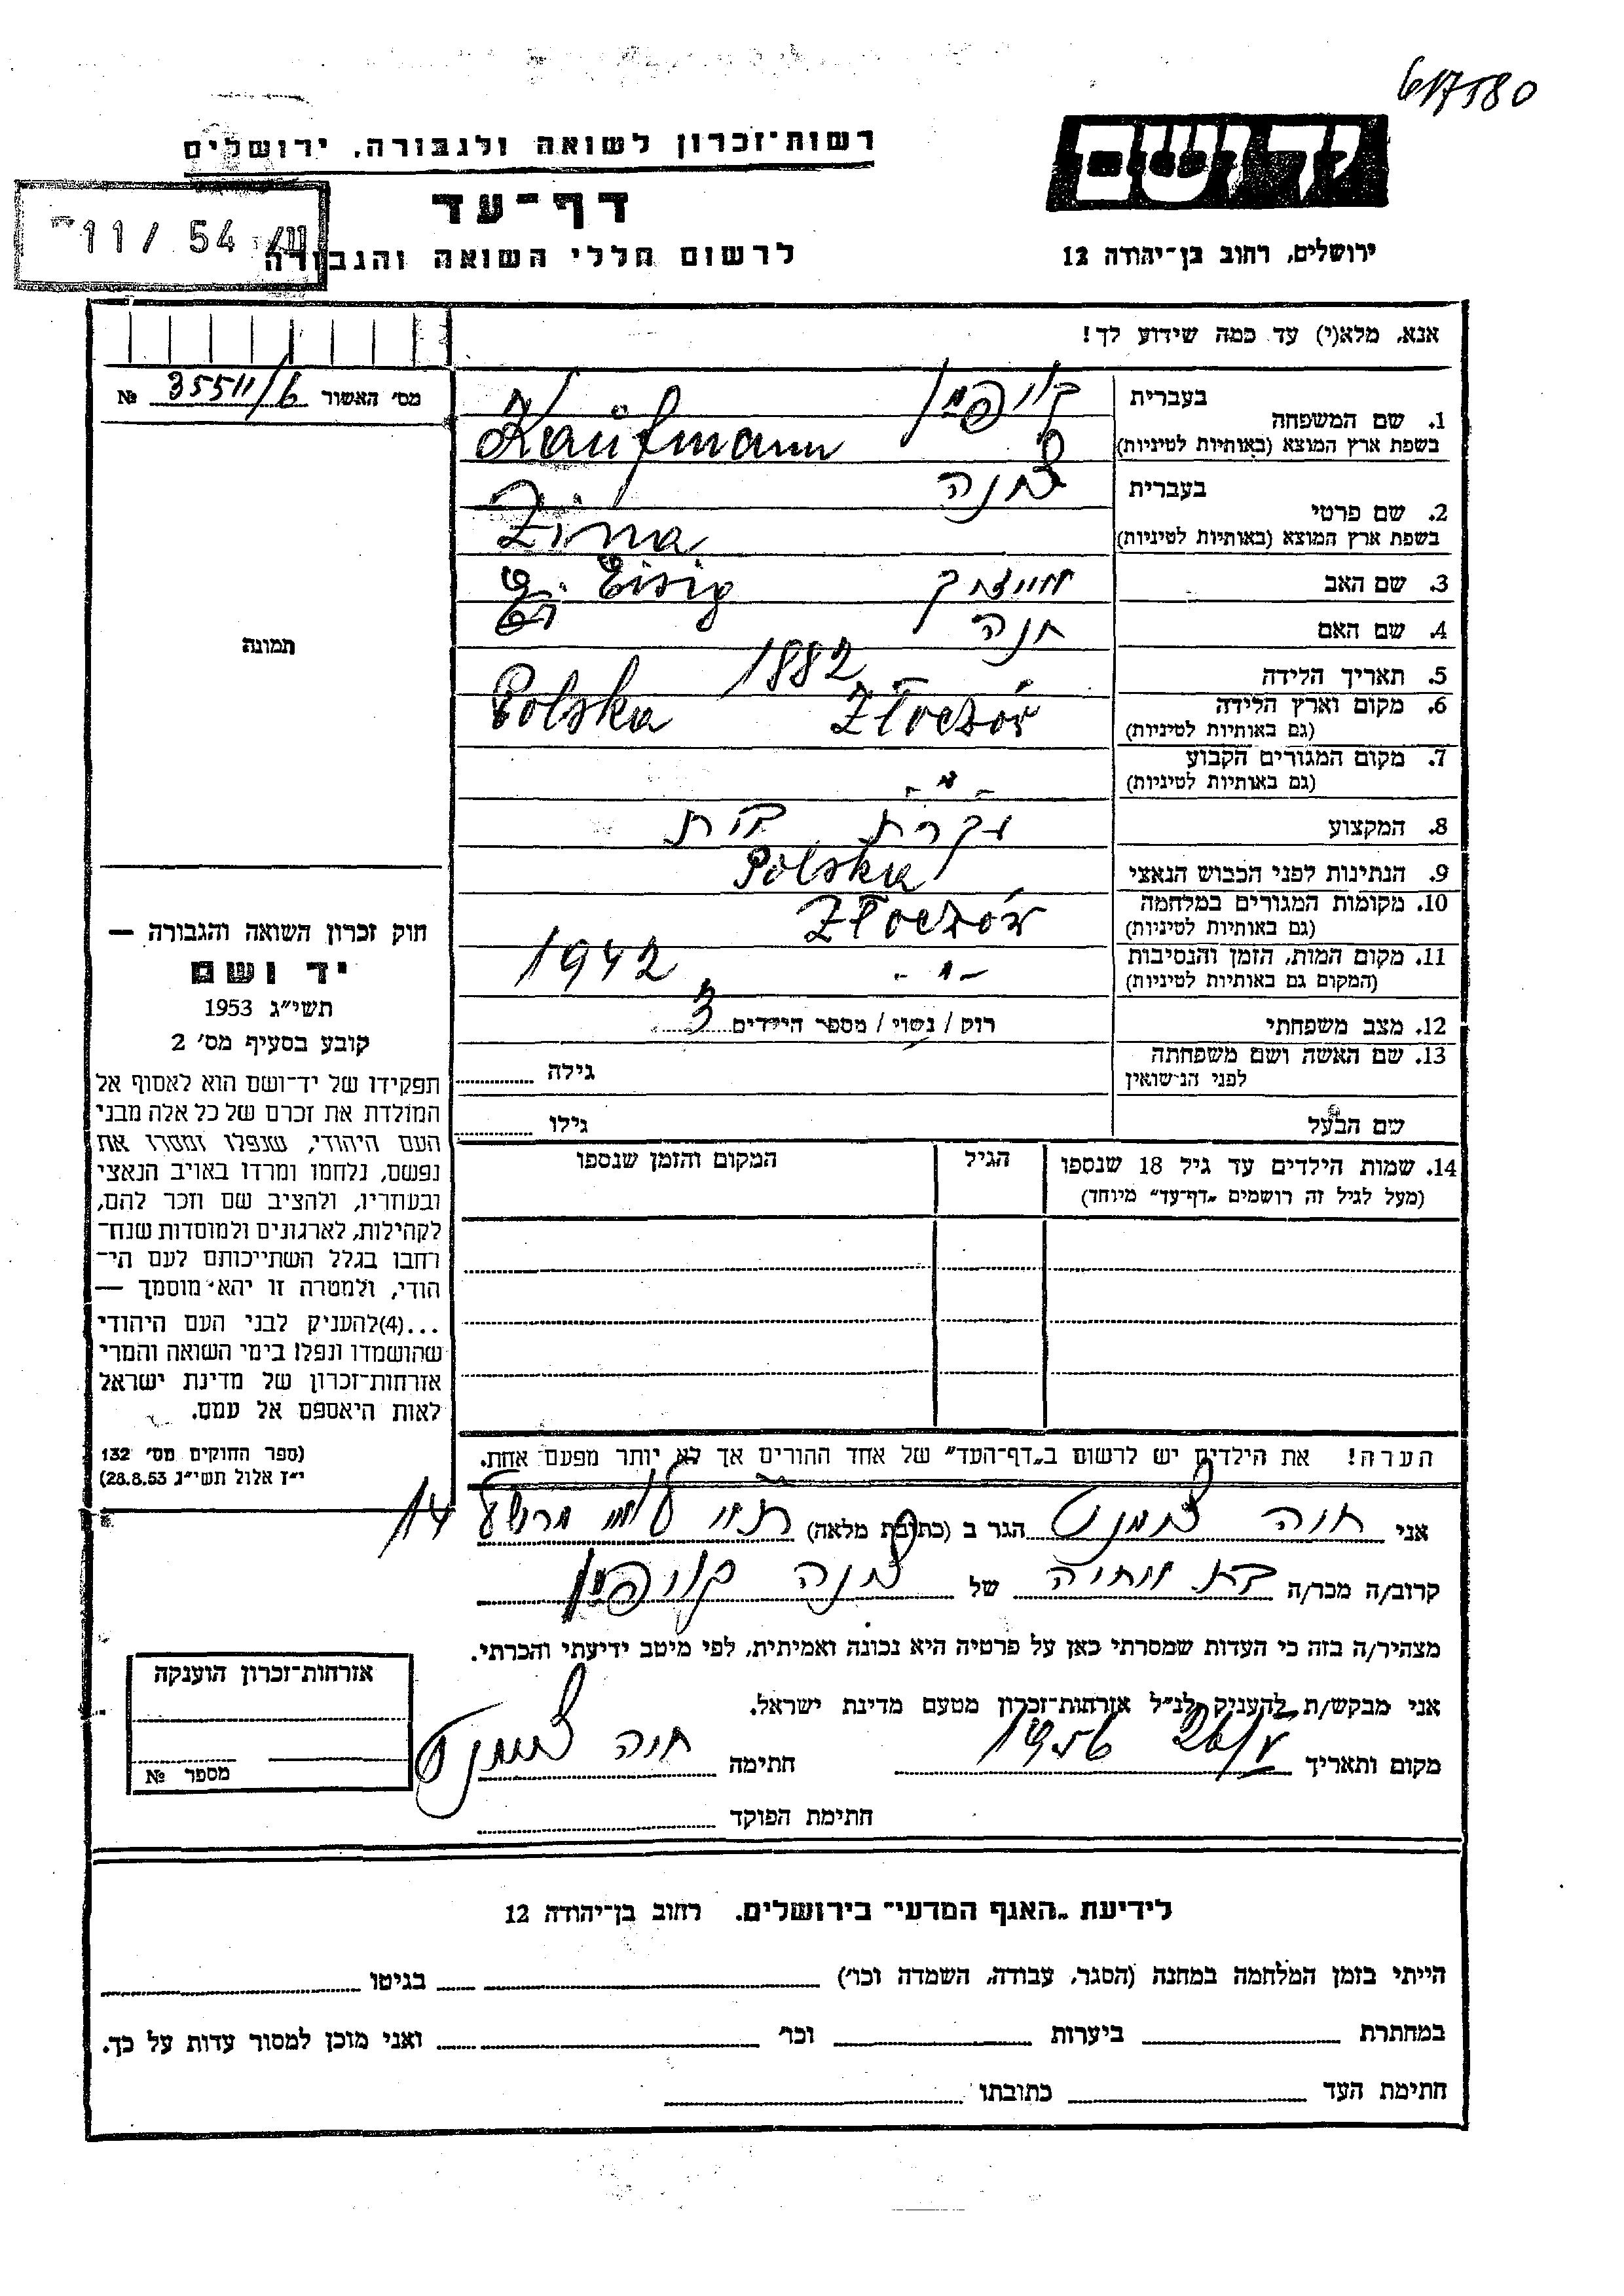 617580
יד ושם
רשות־זכרון לשואה ולגבורה, ירושלים
דף־עד
לרשום חללי השואה והגבורה
ירושלים, רחוב בן־יהודה 12
11/ 54
אנא, מלא(י) עד כמה שידוע לך!
מס׳ האשור 35511/6 №
1. שם המשפחה בעברית קויפמן
בשפת ארץ המוצא (באותיות לטיניות) Kaufmann
2. שם פרטי בעברית
בשפת ארץ המוצא (באותיות לטיניות) Zina
3. שם האב Eisig
4. שם האם חנה
5. תאריך הלידה 1882
6. מקום וארץ הלידה Złoczów Polska
(גם באותיות לטיניות)
7. מקום המגורים הקבוע - " -
(גם באותיות לטיניות)
8. המקצוע עקרת בית
9. הנתינות לפני הכבוש הנאצי Polska
10. מקומות המגורים במלחמה Złoczów
(גם באותיות לטיניות)
11. מקום המות, הזמן והנסיבות - " - 1942
(המקום גם באותיות לטיניות)
12. מצב משפחתי רוק / נשוי / מספר הילדים 3
13. שם האשה ושם משפחתה גילה
לפני הנישואין
שם הבעל גילו
14. שמות הילדים עד גיל 18 שנספו הגיל המקום והזמן שנספו
(מעל לגיל זה רושמים „דף־עד" מיוחד)
הערה! את הילדים יש לרשום ב„דף־העד" של אחד ההורים אך לא יותר מפעם אחת.
תמונה
חוק זכרון השואה והגבורה —
יד ושם
תשי״ג 1953
קובע בסעיף מס׳ 2
תפקידו של יד־ושם הוא לאסוף אל
המולדת את זכרם של כל אלה מבני
העם היהודי, שנפלו ומסרו את
נפשם, נלחמו ומרדו באויב הנאצי
ובעוזריו, ולהציב שם וזכר להם,
לקהילות, לארגונים ולמוסדות שנח־
רחבו בגלל השתייכותם לעם הי־
הודי, ולמטרה זו יהא מוסמך —
...(4)להעניק לבני העם היהודי
שהושמדו ונפלו בימי השואה והמרי
אזרחות־זכרון של מדינת ישראל
לאות היאספם אל עמם.
(ספר החוקים מס׳ 132
י״ז אלול תשי״ג 28.8.53)
אני חוה הגר ב (כתובת מלאה) 14
קרוב/ה מכר/ה של קויפמן
מצהיר/ה בזה כי העדות שמסרתי כאן על פרטיה היא נכונה ואמיתית, לפי מיטב ידיעתי והכרתי.
אני מבקש/ת להעניק לנ״ל אזרחות־זכרון מטעם מדינת ישראל.
מקום ותאריך 26/V 1956 חתימה חוה
חתימת הפוקד
אזרחות־זכרון הוענקה
מספר №
לידיעת „האגף המדעי" בירושלים. רחוב בן־יהודה 12
הייתי בזמן המלחמה במחנה (הסגר, עבודה, השמדה וכו׳) בגיטו
במחתרת ביערות וכו׳ ואני מוכן למסור עדות על כך.
חתימת העד כתובתו